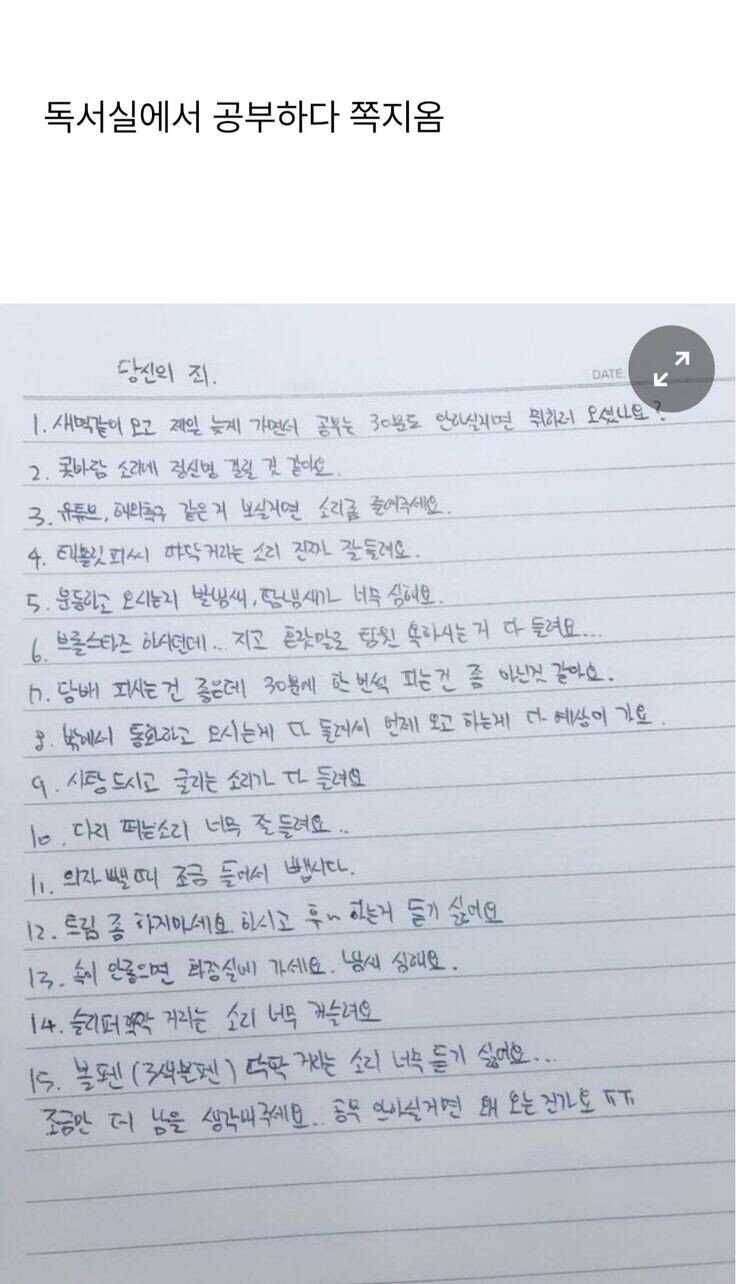 독서실에서 공부하다 쪽지옴
당신의 죄.
DATE
1. 새벽같이 오고 제일 늦게 가면서 공부는 30분도 안하실거면 뭐하러 오셨나요?
2. 콧바람 소리에 정신병 걸릴 것 같아요.
3. 유튜브, 해외축구 같은거 보실거면 소리좀 줄여주세요.
4. 태블릿피씨 타닥거리는 소리 진짜 잘들려요.
5. 운동하고 오시는지 발냄새, 땀냄새가 너무 심해요.
6. 브롤스타즈 하시던데... 지고 혼잣말로 팀원 욕하시는거 다 들려요...
7. 담배 피시는건 좋은데 30분에 한번씩 피는건 좀 아닌것 같아요.
8. 밖에서 통화하고 오시는게 다 들려서 언제 오고 하는게 다 예상이 가요.
9. 사탕드시고 굴리는 소리가 다 들려요
10. 다리 떠는소리 너무 잘들려요..
11. 의자 뺄때 조금 들어서 뺍시다.
12. 트림 좀 하지마세요. 하시고 후~ 하는거 듣기 싫어요
13. 속이 안좋으면 화장실에 가세요. 냄새 심해요.
14. 슬리퍼 짝짝 거리는 소리 너무 거슬려요
15. 볼펜 (3색볼펜) 딱딱 거리는 소리 너무 듣기 싫어요...
조금만 더 남을 생각해주세요... 공부 안하실거면 왜 오는건가요 ㅠㅠ